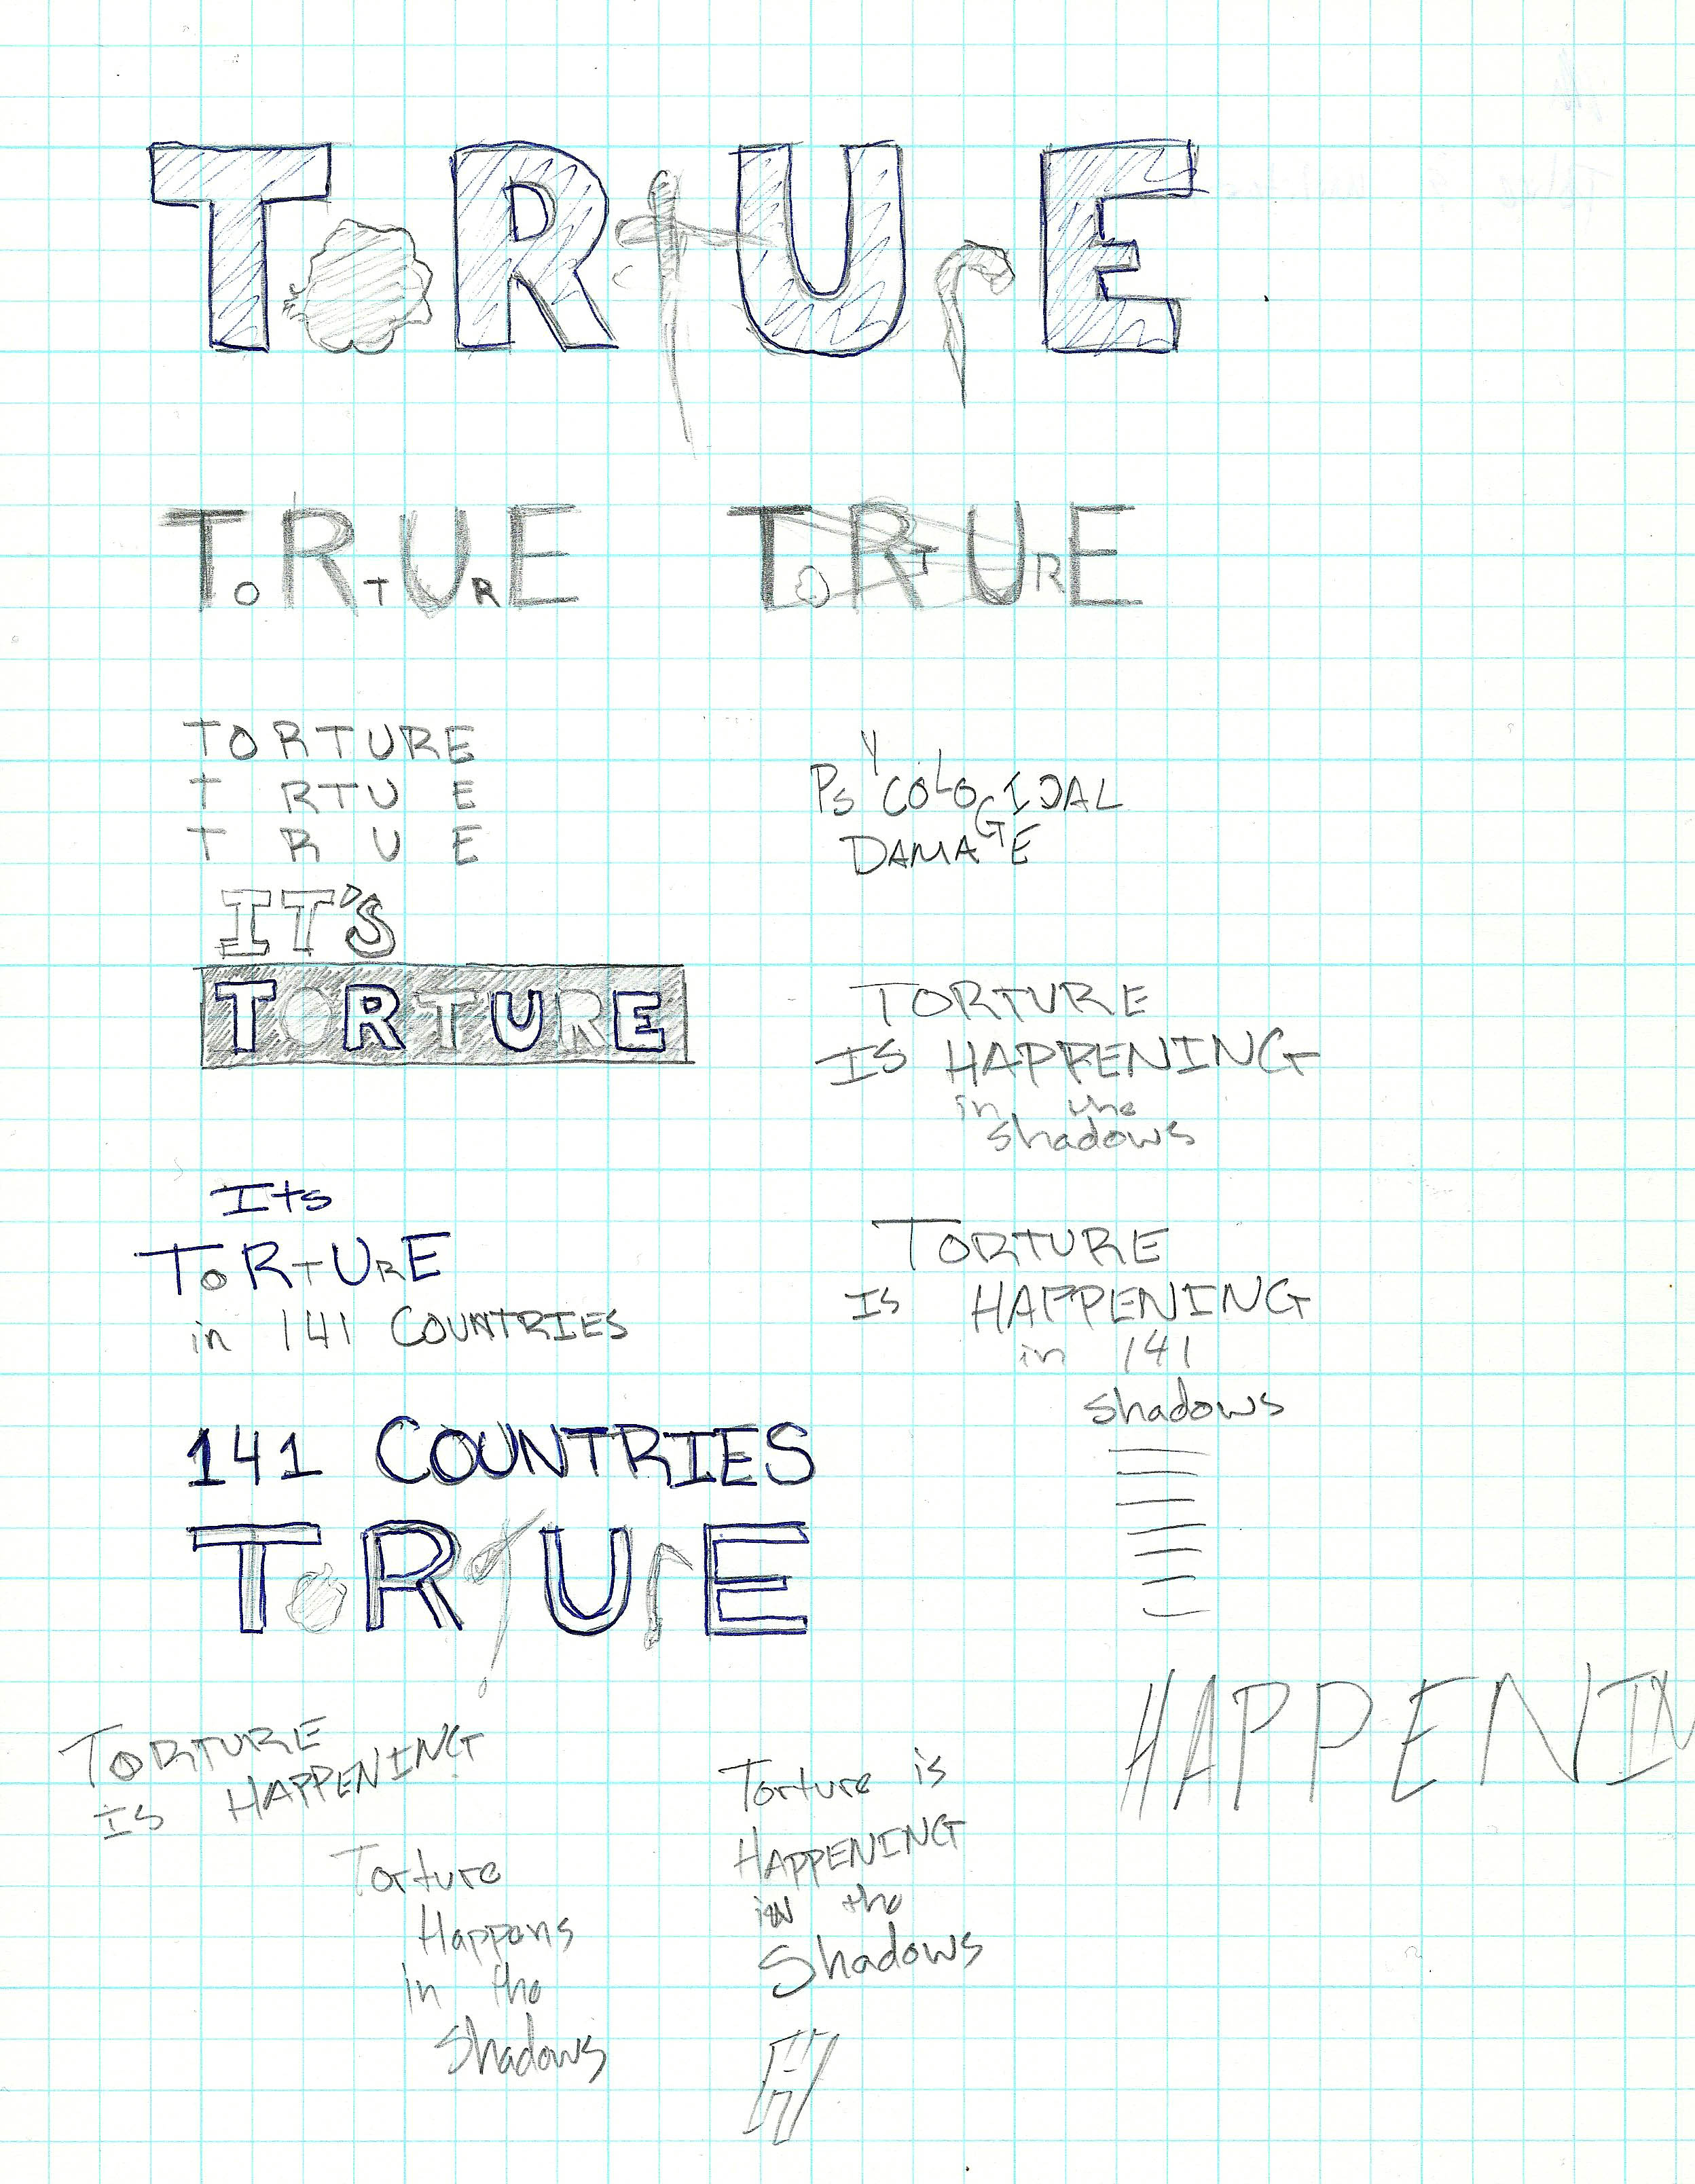 TORtUrE
TORTURE TORTURE
TORTURE
T RTU E
T R U E
PSYCOLOGICAL
DAMAGE
IT'S
TORTURE
TORTURE
IS HAPPENING
in the
shadows
Its
TORTURE
in 141 COUNTRIES
TORTURE
IS HAPPENING
in 141
shadows
141 COUNTRIES
TORTUrE
HAPPENIN
TORTURE
IS HAPPENING
Torture is
HAPPENING
in the
Shadows
Torture
Happens
in the
Shadows
H